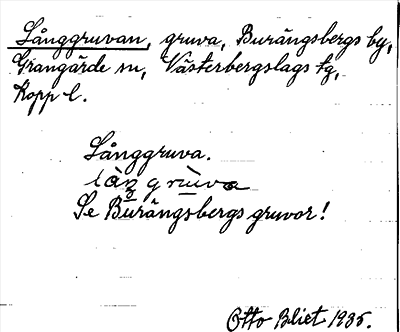 Långgruvan, gruva, Burängsbergs by,
Grangärde sn, Västerbergslags tg,
Kopp. l.
Långgruva.
làŋgrùva
Se Burängsbergs gruvor!
Otto Blixt 1935.